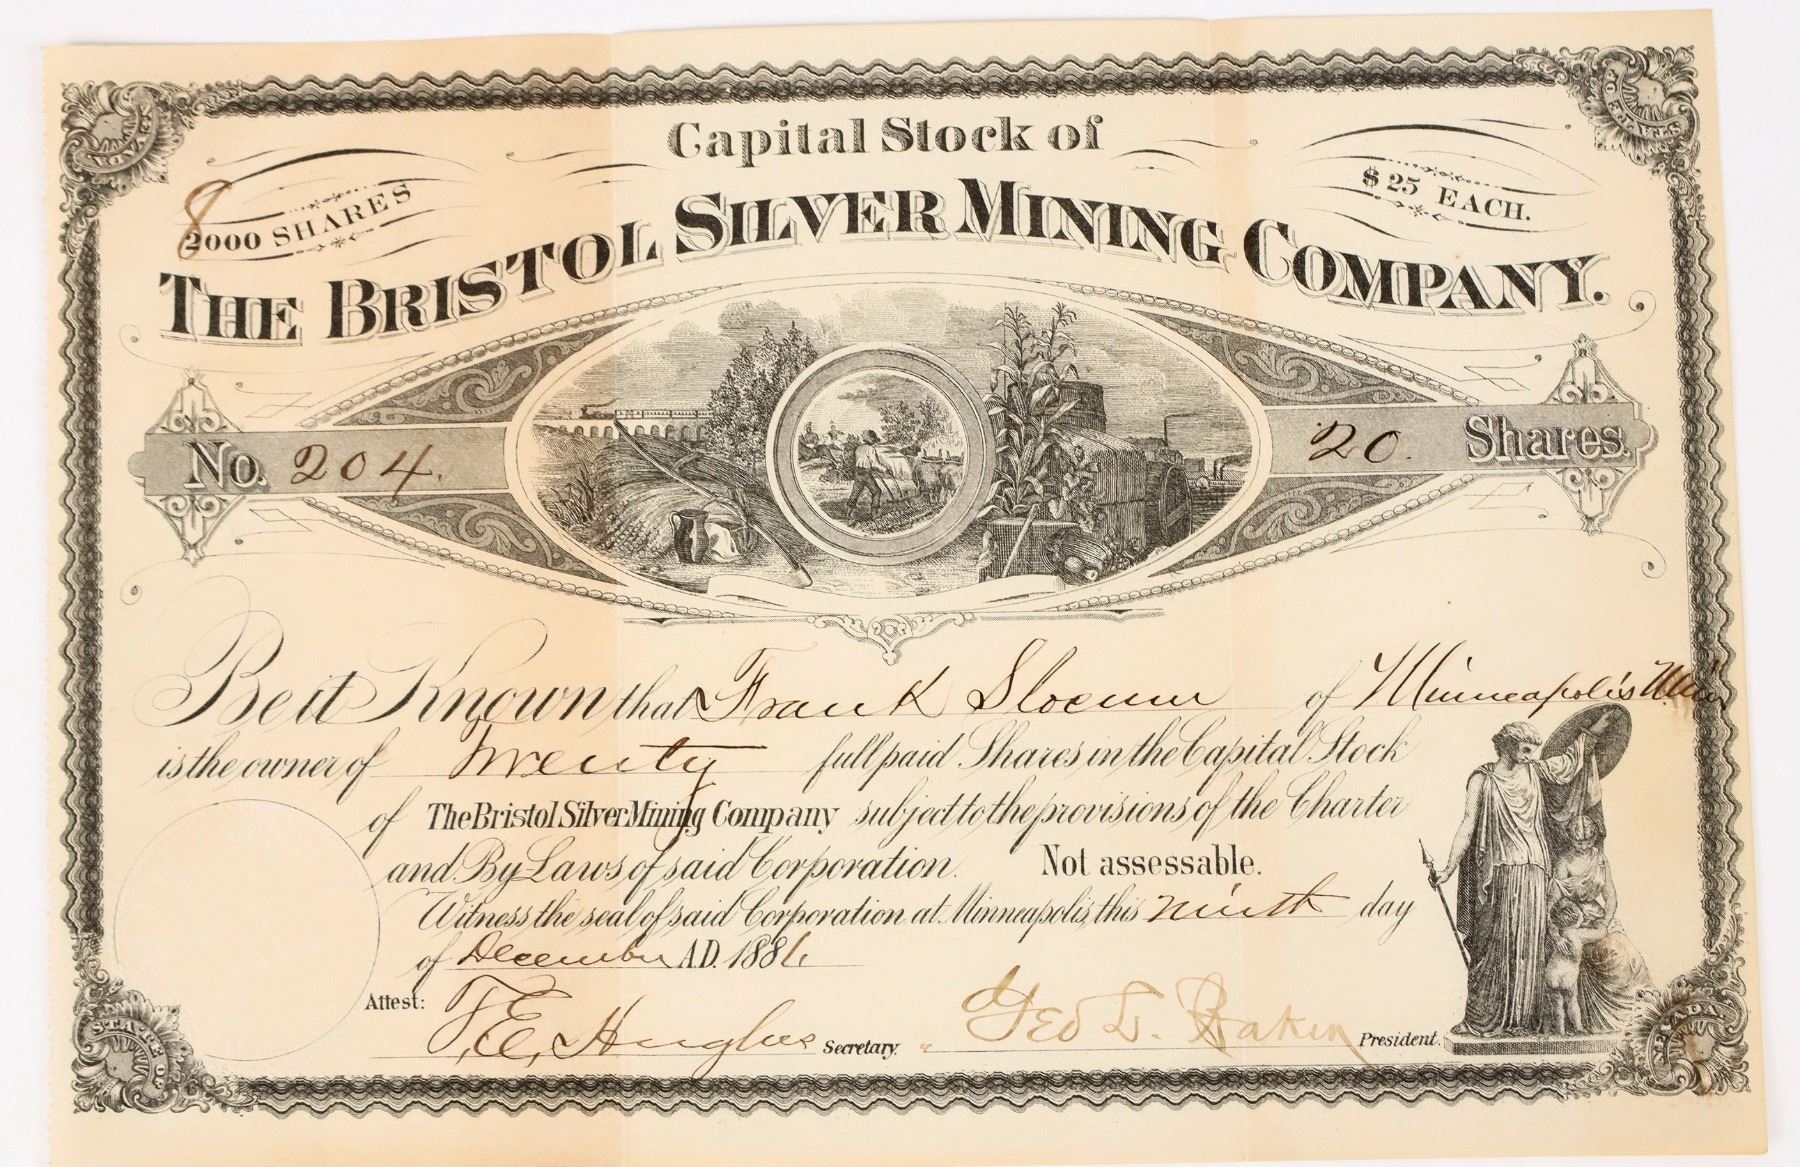 Capital Stock of
8
2000 SHARES
$25 EACH.
THE BRISTOL SILVER MINING COMPANY.
No. 204.
20. Shares.
Be it Known that Frank Slocum of Minneapolis Minn
is the owner of Twenty full paid Shares in the Capital Stock
of The Bristol Silver Mining Company subject to the provisions of the Charter
and By Laws of said Corporation. Not assessable.
Witness the seal of said Corporation at Minneapolis, this ninth day
of December A.D. 1886
Attest: T. E. Hughes Secretary. Geo L. Baker President.
NEVADA
STATE OF
STATE OF
NEVADA